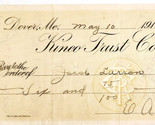 Dover, Me. May 10 191
Kineo Trust Co
Pay to the
order of Jacob Larson
Six and 75
100
E A